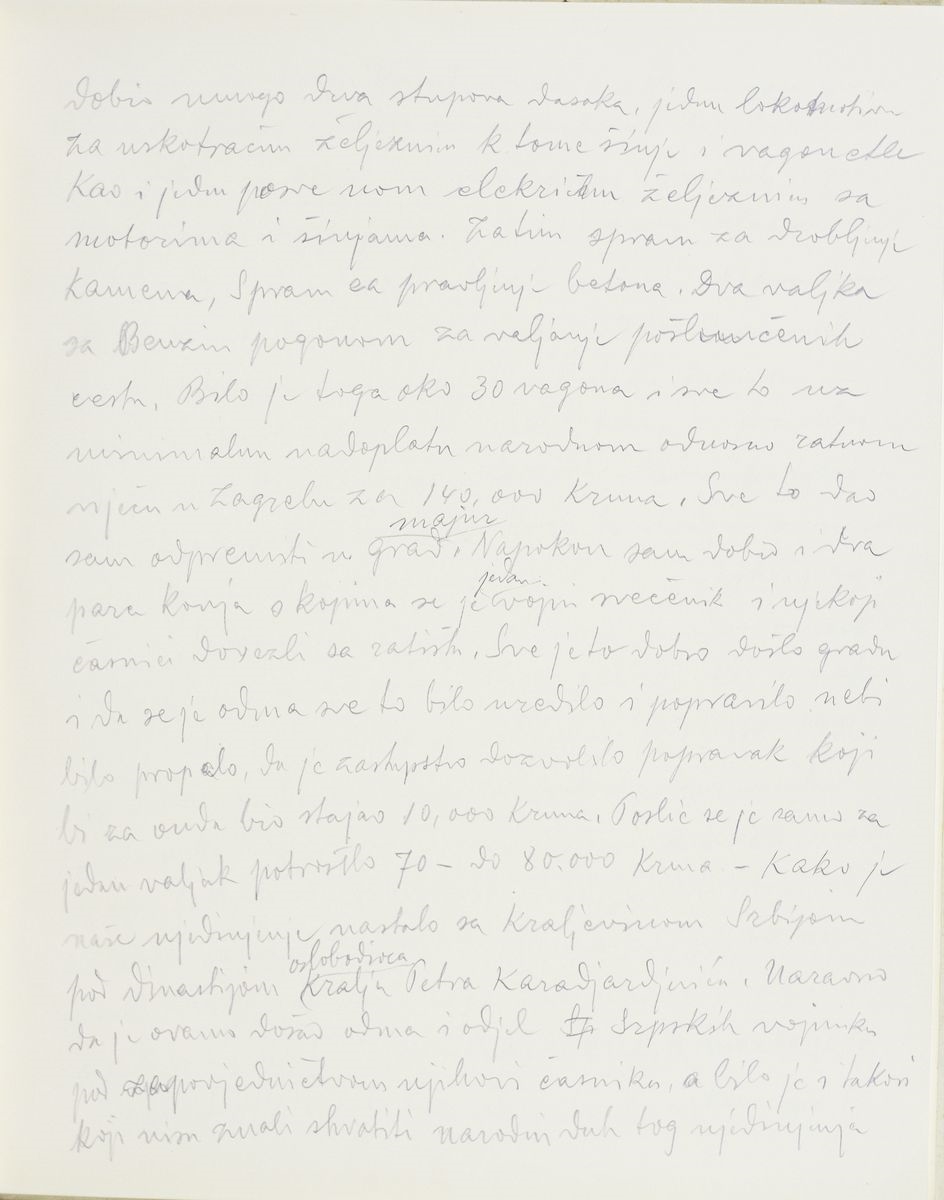 dobio mnogo drva stupova dasaka, jednu lokomotivu
za uskotračnu željeznicu k tome šinje i vagonetle
Kao i jednu posve novu elekričnu željeznicu sa
motorima i šinjama. Zatim spravu za drobljenje
Kamena, Spravu za pravljenje betona. Dva valjka
sa Benzin pogonom za valjanje pošlunčenih
cesta. Bilo je toga oko 30 vagona i sve to uz
minimalnu nadoplatu narodnom odnosno ratnom
vjeću u Zagrebu za 140,000 Kruna. Sve to dao
sam odpremiti u grad. Napokon sam dobio i dva
majur
para konja s kojima se je jedan vojni svećenik i njekoji
časnici dovezli sa ratišta. Sve je to dobro došlo gradu
i da se je odma sve to bilo uredilo i popravilo nebi
bilo propalo, da je zastupstvo dozvolilo popravak koji
bi za onda bio stajao 10,000 Kruna. Poslie se je samo za
jedan valjak potrošilo 70 – do 80.000 Kruna – Kako je
naše ujedinjenje nastalo sa Kraljevinom Srbijom
pod dinastijom Kralja oslobodioca Petra Karadjardjevića. Naravno
da je ovamo došao odma i odjel Srpskih vojnika
pod zapovjedničtvom njihovi časnika, a bilo je i takovi
koji nisu znali shvatiti narodni duh tog ujedinjenja